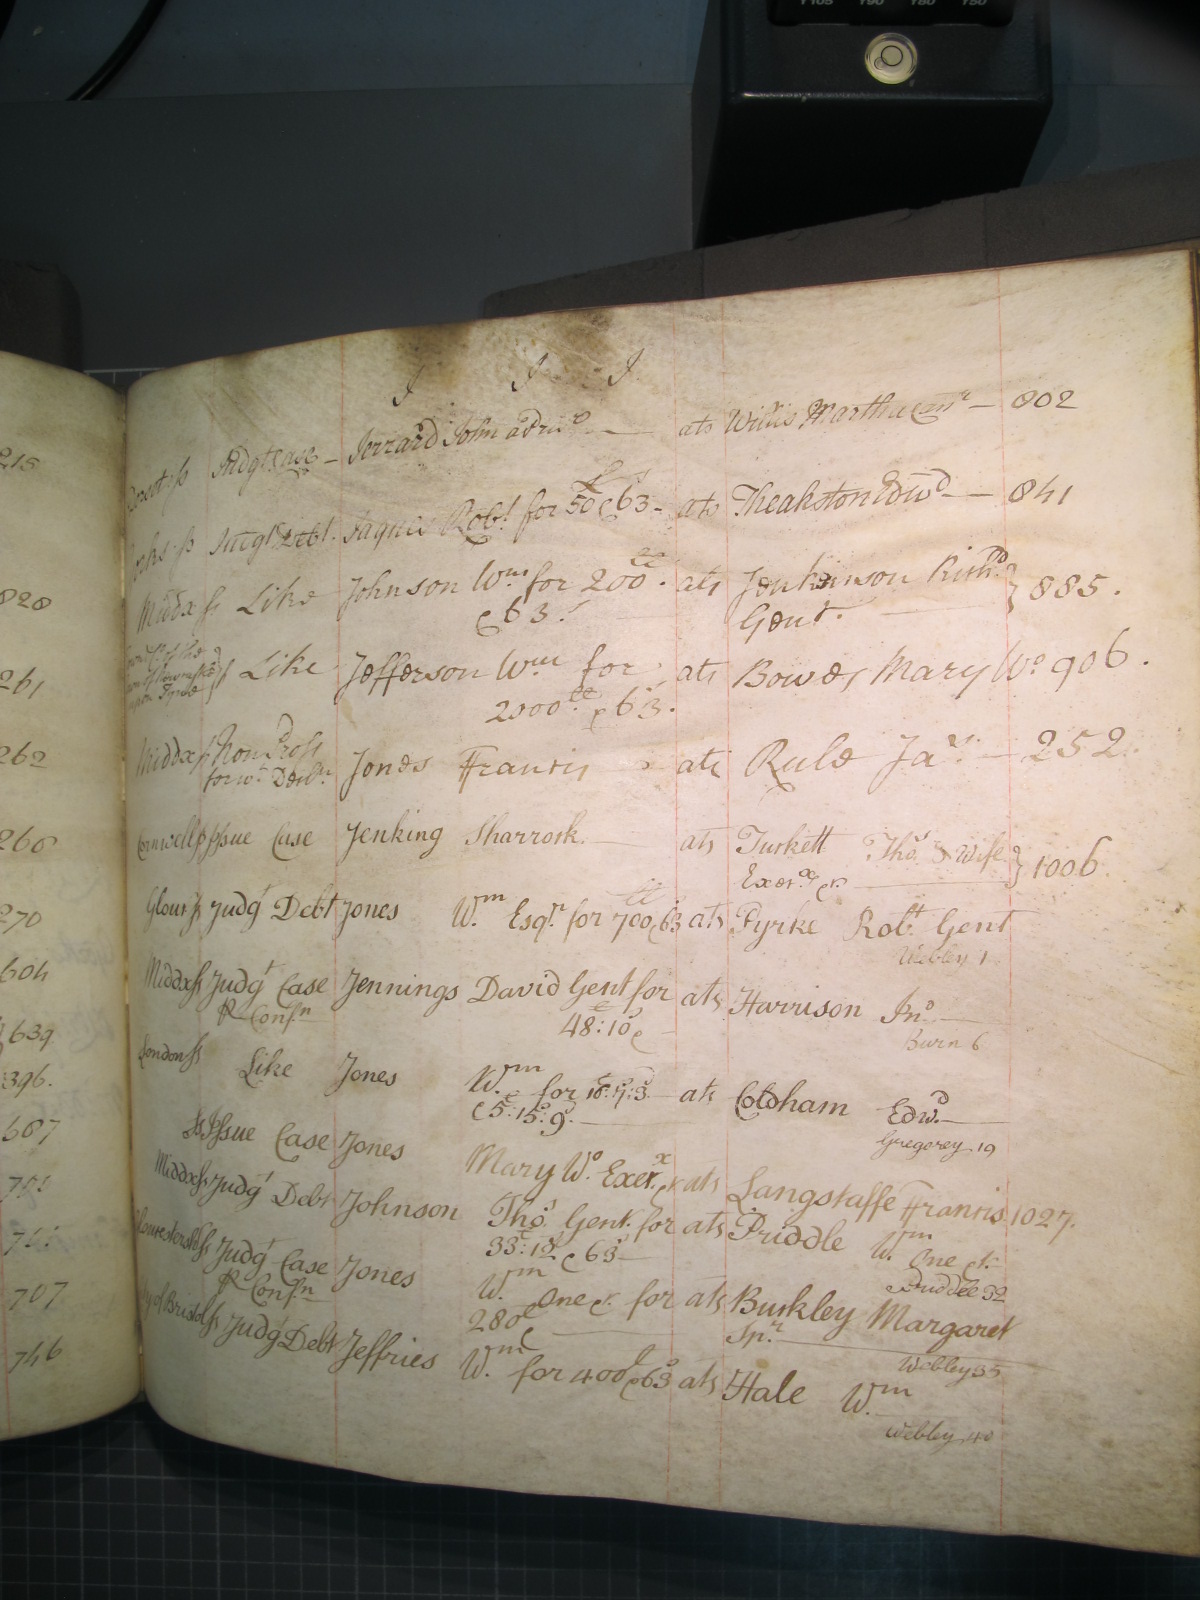 Y105 Y90 Y80 Y50
J J J
Dorset ss Judgt Case - Jerrard John adm̄or — ats Willis Martha — 802
Judgt Debt. Jayne Robt. for 50£ & 63s - ats Theakston Edwd. — 841
Middx ss Like Johnson Wm. for 200££. ats Jenkinson Richd. } 885.
& 63s. Gent.
Like Jefferson Wm for ats Bowes Mary Wo. 906.
upon Tyne 2000££ & 63s.
Middx ss Non Pross Jones Francis ats Rule Jas. — 252.
for wt. Decln.
Cornwall ss Issue Case Jenking Sharrock. — ats Turkett Thos. & Wife } 1006
Exerx. &c.
Glour ss Judgt Debt Jones Wm. Esqr. for 700££ & 63s ats Pyrke Robt. Gent
Webley 1
Middx ss Judgt Case Jennings David Gent for ats Harrison Jno. —
P Confn 48£:10s &
Burn 6
London ss Like Jones Wm. for 16£:7:3. ats Coldham Edwd. —
& 5:15:9.
Gregorey 19
ss Issue Case Jones Mary Wo. Exerx. &c ats Langstaffe Francis 1027.
Middx ss Judgt Debt Johnson Thos. Gent. for ats Priddle Wm. One &c.
33£:12s & 63s —
Priddle 32
Gloucestersh ss Judgt Case Jones Wm. One &c. for ats Buckley Margaret
P Confn 280£ — Spr. —
Webley 35
City of Bristol ss Judgt Debt Jeffries Wm. for 400£ & 63s ats Hale Wm.
Webley 40
215
828
261
262
268
270
604
639
396.
687
707
746